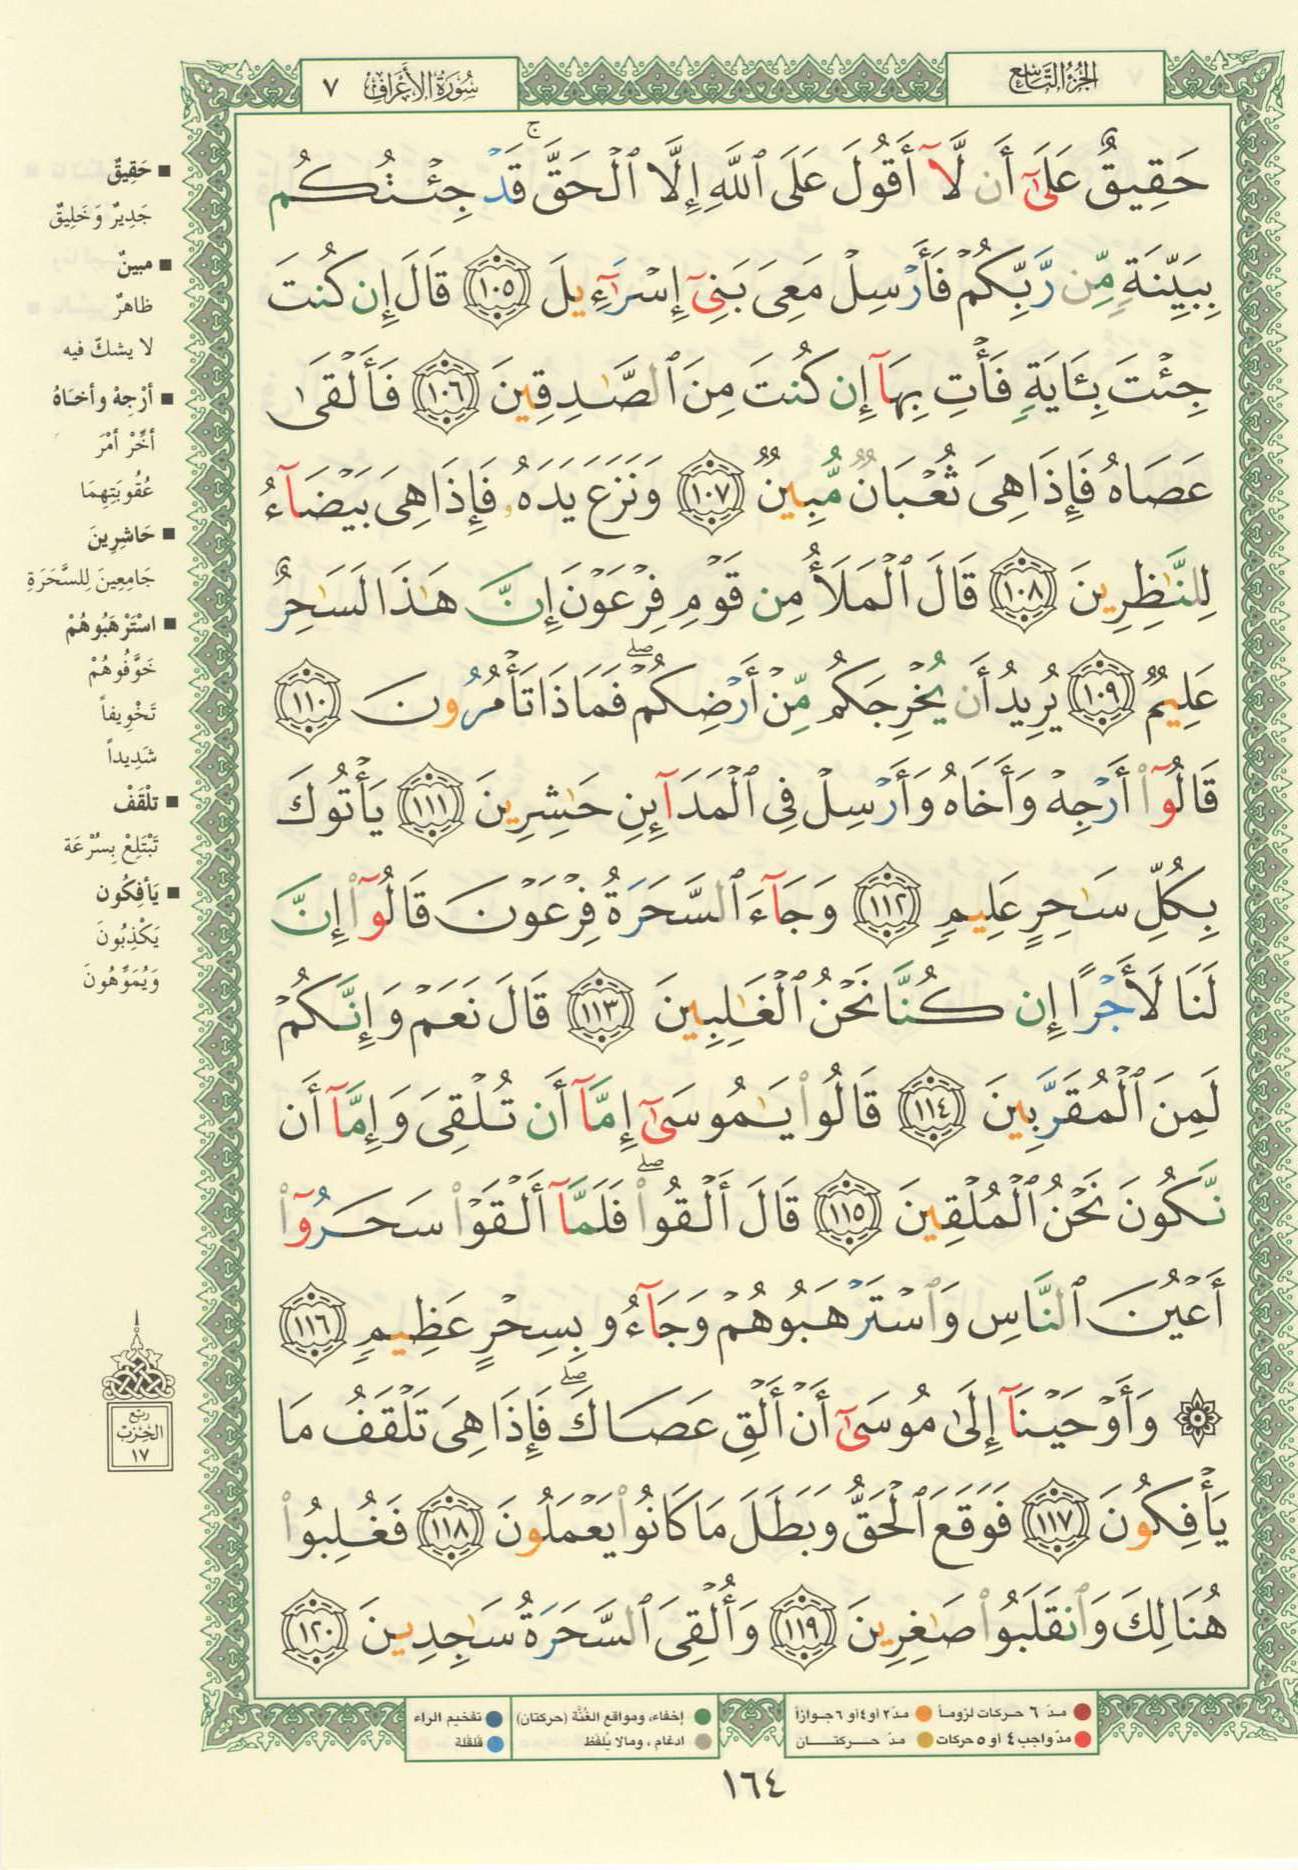 الجزء التاسع
سورة الأعراف ٧
حَقِيقٌ عَلَىٰٓ أَن لَّآ أَقُولَ عَلَى ٱللَّهِ إِلَّا ٱلْحَقَّ ۚ قَدْ جِئْتُكُم
بِبَيِّنَةٍ مِّن رَّبِّكُمْ فَأَرْسِلْ مَعِىَ بَنِىٓ إِسْرَٰٓءِيلَ ١٠٥ قَالَ إِن كُنتَ
جِئْتَ بِـَٔايَةٍ فَأْتِ بِهَآ إِن كُنتَ مِنَ ٱلصَّـٰدِقِينَ ١٠٦ فَأَلْقَىٰ
عَصَاهُ فَإِذَا هِىَ ثُعْبَانٌ مُّبِينٌ ١٠٧ وَنَزَعَ يَدَهُۥ فَإِذَا هِىَ بَيْضَآءُ
لِلنَّـٰظِرِينَ ١٠٨ قَالَ ٱلْمَلَأُ مِن قَوْمِ فِرْعَوْنَ إِنَّ هَـٰذَا لَسَـٰحِرٌ
عَلِيمٌ ١٠٩ يُرِيدُ أَن يُخْرِجَكُم مِّنْ أَرْضِكُمْ ۖ فَمَاذَا تَأْمُرُونَ ١١٠
قَالُوٓا۟ أَرْجِهْ وَأَخَاهُ وَأَرْسِلْ فِى ٱلْمَدَآئِنِ حَـٰشِرِينَ ١١١ يَأْتُوكَ
بِكُلِّ سَـٰحِرٍ عَلِيمٍ ١١٢ وَجَآءَ ٱلسَّحَرَةُ فِرْعَوْنَ قَالُوٓا۟ إِنَّ
لَنَا لَأَجْرًا إِن كُنَّا نَحْنُ ٱلْغَـٰلِبِينَ ١١٣ قَالَ نَعَمْ وَإِنَّكُمْ
لَمِنَ ٱلْمُقَرَّبِينَ ١١٤ قَالُوا۟ يَـٰمُوسَىٰٓ إِمَّآ أَن تُلْقِىَ وَإِمَّآ أَن
نَّكُونَ نَحْنُ ٱلْمُلْقِينَ ١١٥ قَالَ أَلْقُوا۟ ۖ فَلَمَّآ أَلْقَوْا۟ سَحَرُوٓا۟
أَعْيُنَ ٱلنَّاسِ وَٱسْتَرْهَبُوهُمْ وَجَآءُو بِسِحْرٍ عَظِيمٍ ١١٦
۞ وَأَوْحَيْنَآ إِلَىٰ مُوسَىٰٓ أَنْ أَلْقِ عَصَاكَ ۖ فَإِذَا هِىَ تَلْقَفُ مَا
يَأْفِكُونَ ١١٧ فَوَقَعَ ٱلْحَقُّ وَبَطَلَ مَا كَانُوا۟ يَعْمَلُونَ ١١٨ فَغُلِبُوا۟
هُنَالِكَ وَٱنقَلَبُوا۟ صَـٰغِرِينَ ١١٩ وَأُلْقِىَ ٱلسَّحَرَةُ سَـٰجِدِينَ ١٢٠
■ حَقِيقٌ
جَدِيرٌ وَخَلِيقٌ
■ مبينٌ
ظاهرٌ
لا يشكّ فيه
■ أرْجِهْ وأخَاهُ
أخِّرْ أمْرَ
عُقُوبَتِهِمَا
■ حَاشِرِينَ
جَامِعِينَ لِلسَّحَرَةِ
■ اسْتَرْهَبُوهُمْ
خَوَّفُوهُمْ
تَخْوِيفاً
شَدِيداً
■ تلْقَفْ
تَبْتَلِعْ بِسُرْعَة
■ يَأفِكُون
يَكْذِبُونَ
وَيُمَوِّهُونَ
ربع
الحزب
١٧
مدّ ٦ حركات لزوماً مدّ ٢ أو ٤ أو ٦ جوازاً
مدّ واجب ٤ أو ٥ حركات مدّ حركتان
إخفاء، ومواقع الغُنَّة (حركتان)
ادغام، ومالا يُلفَظ
تفخيم الراء
قلقلة
١٦٤